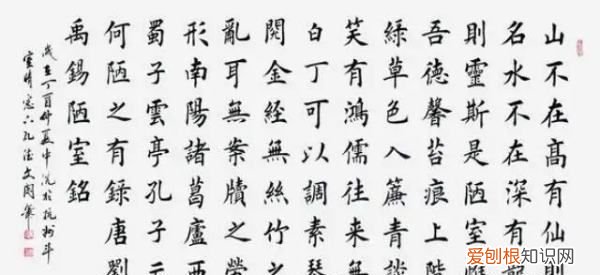 山不在高有仙則
名水不在深有龍
則靈斯是陋室
吾德馨苔痕上階
綠草色入簾青談
笑有鴻儒往來無
白丁可以調素琴
閱金經無絲竹之
亂耳無案牘之勞
形南陽諸葛廬西
蜀子雲亭孔子云
何陋之有錄唐劉
禹錫陋室銘
歲在丁酉仲夏中浣於杭州斗
室晴窗六孔法文
爱刨根知识网